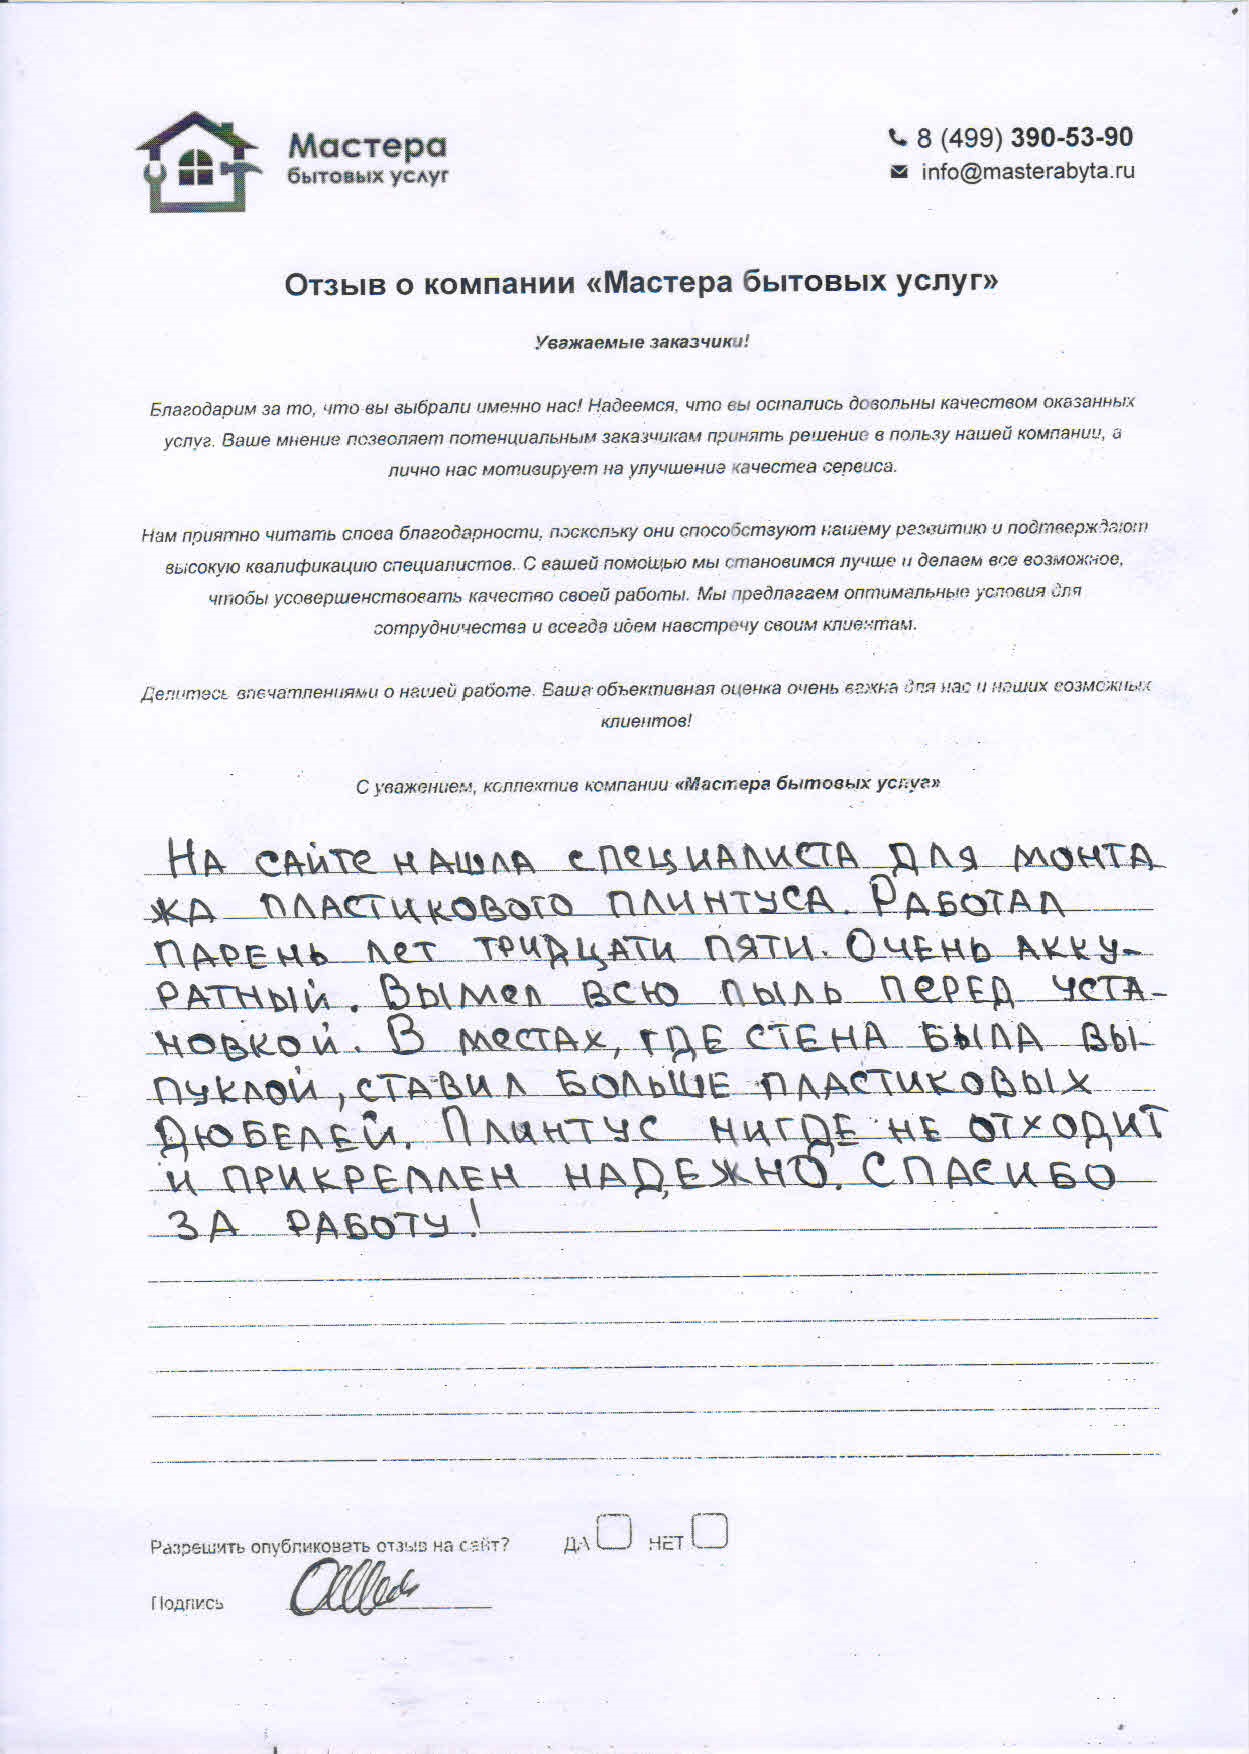 Мастера
бытовых услуг
8 (499) 390-53-90
info@masterabyta.ru
Отзыв о компании «Мастера бытовых услуг»
Уважаемые заказчики!
Благодарим за то, что вы выбрали именно нас! Надеемся, что вы остались довольны качеством оказанных
услуг. Ваше мнение позволяет потенциальным заказчикам принять решение в пользу нашей компании, а
лично нас мотивирует на улучшение качества сервиса.
Нам приятно читать слова благодарности, поскольку они способствуют нашему развитию и подтверждают
высокую квалификацию специалистов. С вашей помощью мы становимся лучше и делаем все возможное,
чтобы усовершенствовать качество своей работы. Мы предлагаем оптимальные условия для
сотрудничества и всегда идем навстречу своим клиентам.
Делитесь впечатлениями о нашей работе. Ваша объективная оценка очень важна для нас и наших возможных
клиентов!
С уважением, коллектив компании «Мастера бытовых услуг»
На сайте нашла специалиста для монта
жа пластикового плинтуса. Работал
парень лет тридцати пяти. Очень акку-
ратный. Вымел всю пыль перед уста-
новкой. В местах, где стена была вы-
пуклой, ставил больше пластиковых
дюбелей. Плинтус нигде не отходит
и прикреплен надежно. Спасибо
за работу!
Разрешить опубликовать отзыв на сайт? ДА НЕТ
Подпись